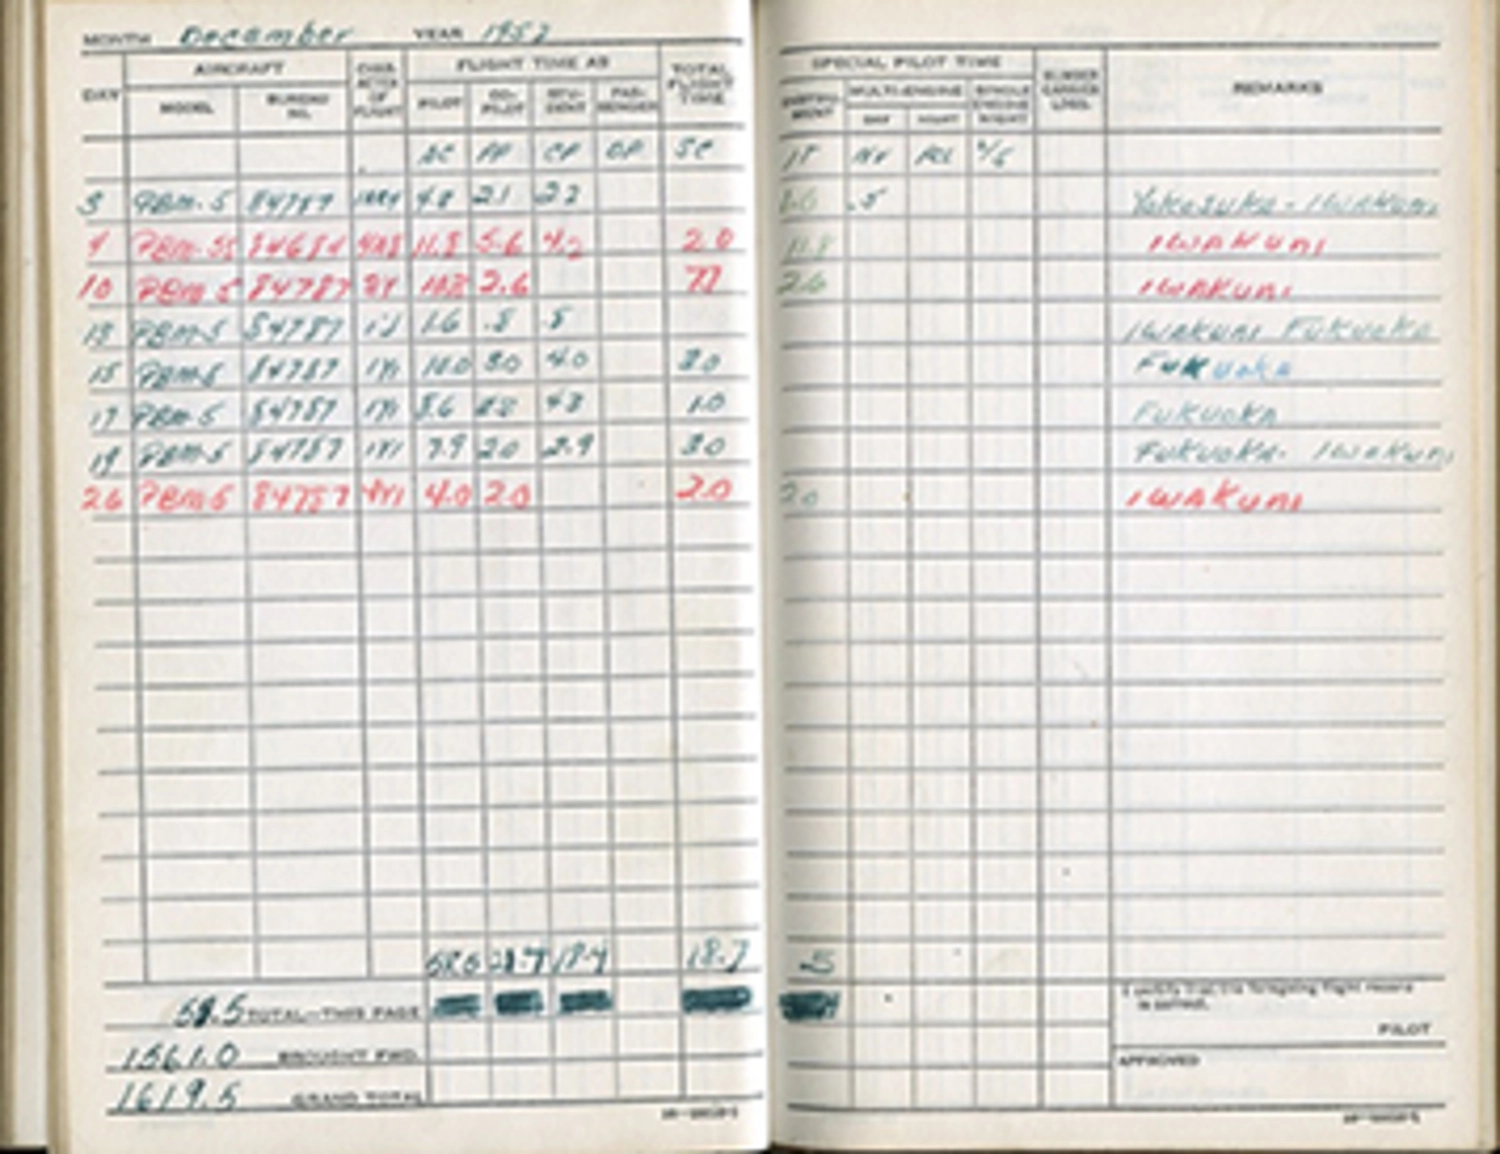 MONTH December YEAR 1952
DAY AIRCRAFT CHARACTER OF FLIGHT FLIGHT TIME AS TOTAL FLIGHT TIME
MODEL BUREAU NO. PILOT CO-PILOT STUDENT PASSENGER
AC PP CP OP SC
3 PBM-5 84787 4.8 2.1 2.2
PBM-5S 84684 11.8 5.6 4.2 2.0
10 PBM-5 84787 2.6 7.7
13 PBM-5 84787 1.6 .8 .8
15 PBM-5 84787 10.0 3.0 4.0 3.0
17 PBM-5 84787 8.6 4.8 1.0
19 PBM-5 84787 7.9 2.0 2.9 3.0
26 PBM-5 84787 4.0 2.0 2.0
58.5 18.4 18.7
58.5 TOTAL—THIS PAGE
1561.0 BROUGHT FWD.
1619.5 GRAND TOTAL
SPECIAL PILOT TIME NUMBER CARRIER LDGS. REMARKS
INSTRUMENT MULTI-ENGINE SINGLE ENGINE NIGHT
DAY NIGHT
.5 Yokosuka - Iwakuni
11.8 Iwakuni
2.6 Iwakuni
Iwakuni Fukuoka
Fukuoka
Fukuoka
Fukuoka - Iwakuni
2.0 Iwakuni
.5
I certify that the foregoing flight record is correct.
PILOT
APPROVED